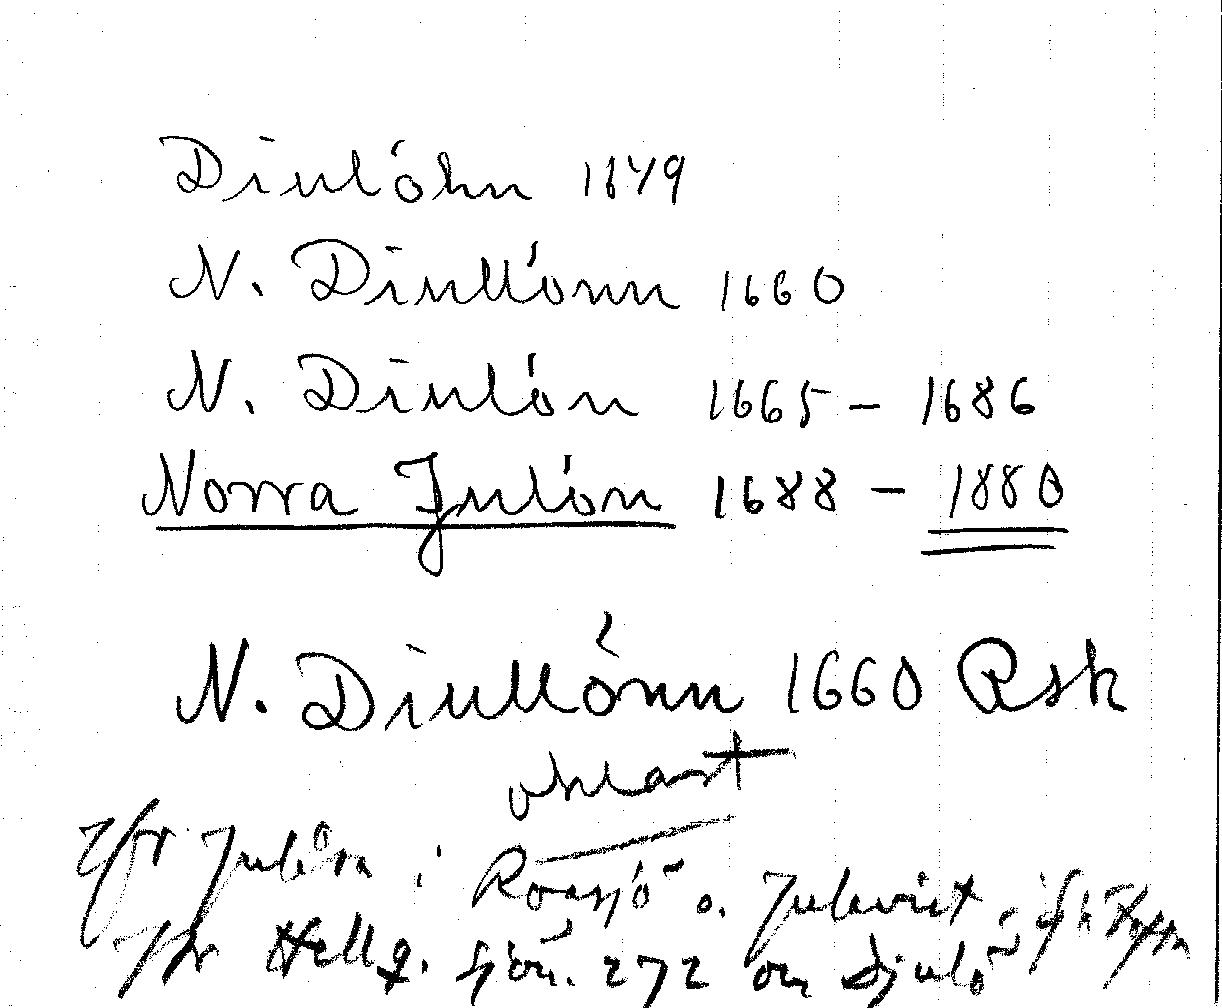 Diulöhn 1649
N. Diullönn 1660
N. Diulön 1665 – 1686
Norra Julön 1688 – 1880
N. Diullönn 1660 Rsk
oklart
Jfr Julön i Roasjö o. Julevist i
Jfr Hellq. Sjön. 272 om Djulö